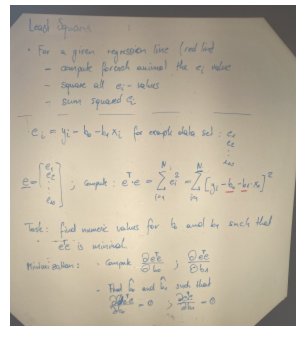 Least Squares
• For a given regression line (red line)
– compute for each animal the eᵢ value
– square all eᵢ-values
– sum squared eᵢ
eᵢ = yᵢ - b₀ - b₁xᵢ for example data set : e₁
e₂
⋮
e₁₀
e = [e₁ e₂ ⋮ e₁₀] ; compute : eᵀ·e = Σᵢ₌₁ᴺ eᵢ² = Σᵢ₌₁ᴺ [yᵢ - b₀ - b₁xᵢ]²
Task: find numeric values for b₀ and b₁ such that
eᵀe is minimal
Minimization: - compute ∂eᵀe/∂b₀ ; ∂eᵀe/∂b₁
- Find b̂₀ and b̂₁ such that
∂eᵀe/∂b₀ = 0 ; ∂eᵀe/∂b₁ = 0